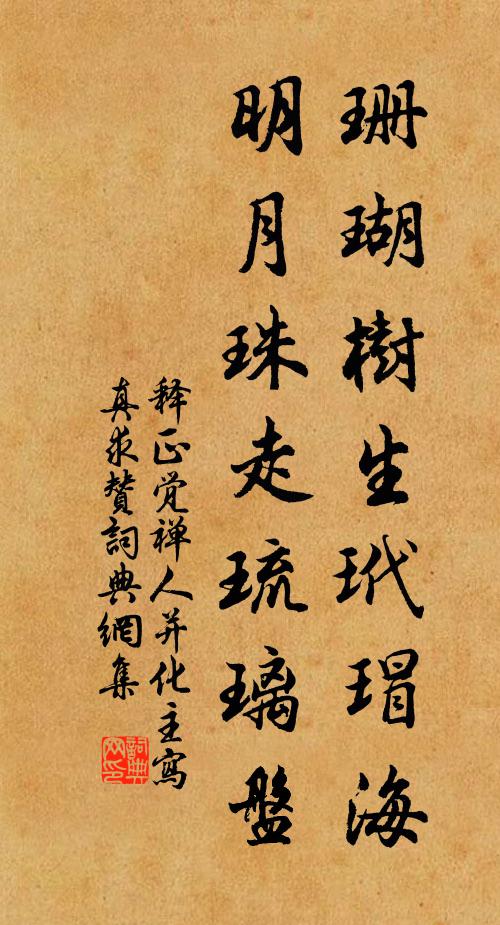 珊瑚樹生玳瑁海
明月珠走琉璃盤
释正觉禅人并化主寫
真求贊詞典網集
詞典网印